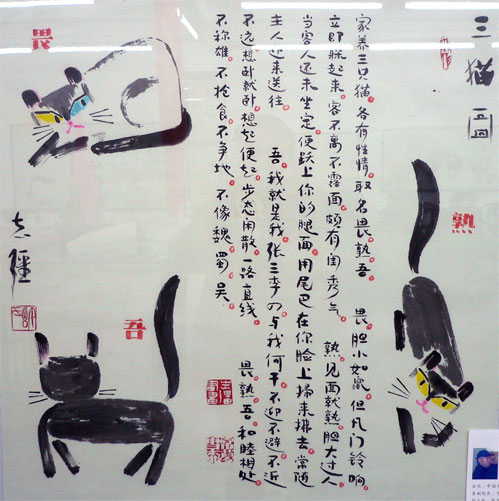 三猫圖
家养三只猫各有性情取名畏熟吾 畏胆小如鼠但凡门铃响
立即躲起来客不离不露面颇有闺秀气 熟见面就熟胆大过人
当客人还未坐定便跃上你的腿面用尾巴在你脸上扫来拂去常随
主人迎来送往 吾我就是我张三李四与我何干不迎不避不近
不远想卧就卧想起便起步态闲散一路直线 畏熟吾和睦相处
不称雄不抢食不争地不像魏蜀吴
熟
畏
吾
志疆